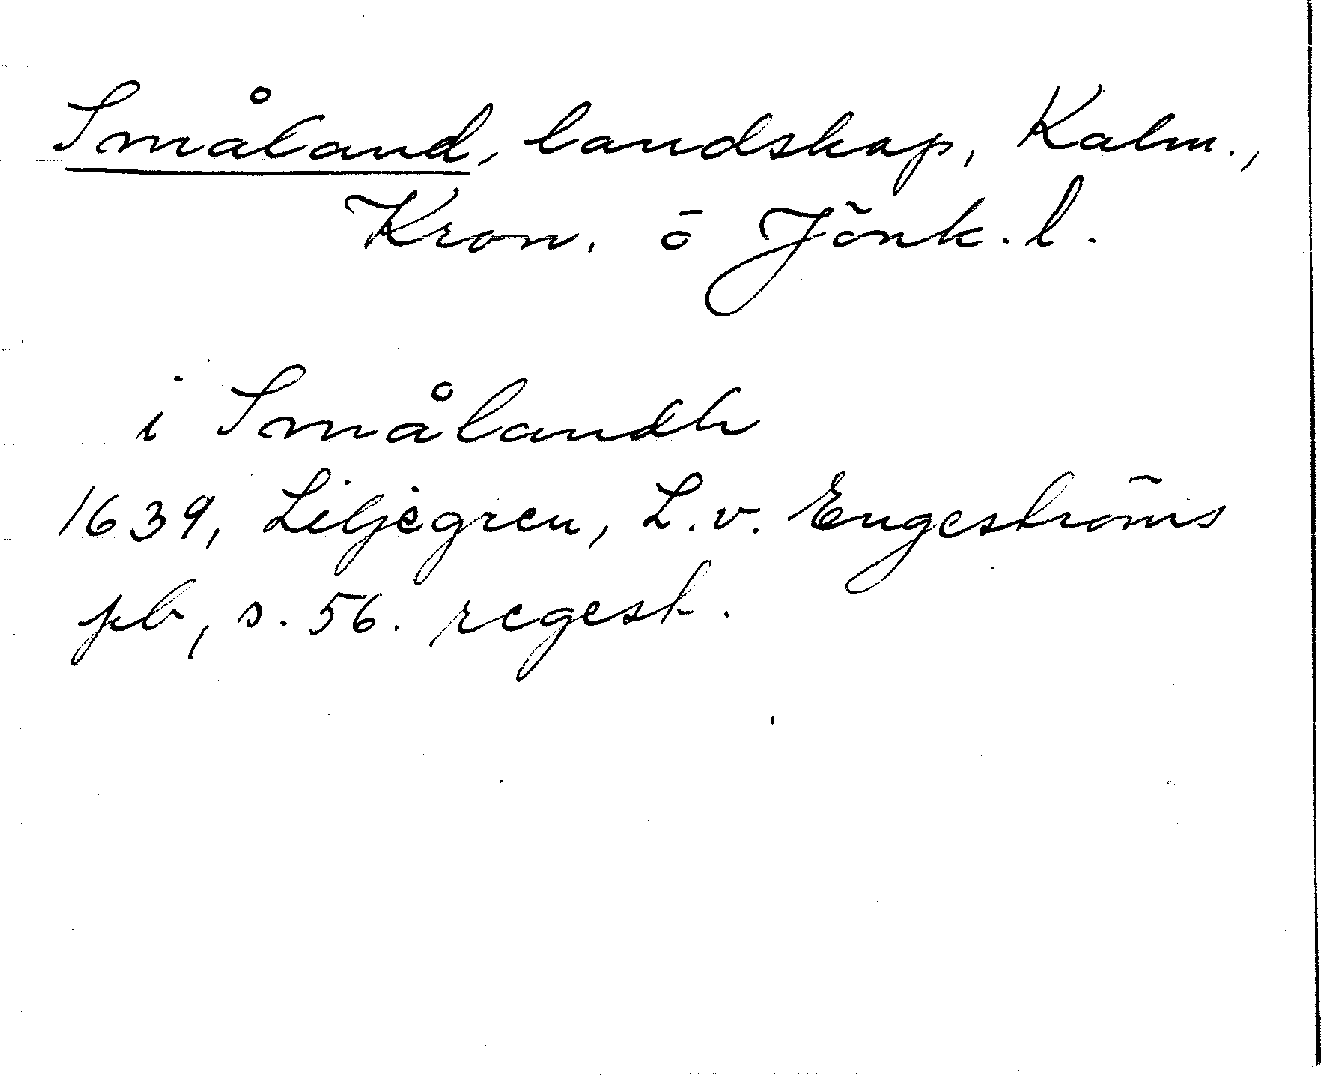 Småland, landskap, Kalm.,
Kron. o Jönk. l.
i Smålandh
1639, Liljegren, L. v. Engeströms
pb, s. 56. regest.